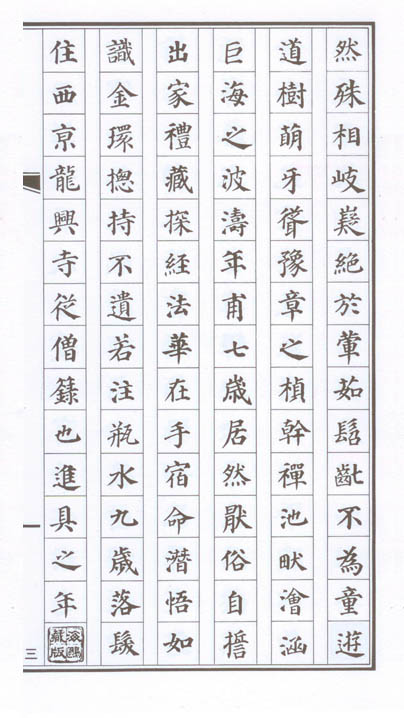 然殊相岐嶷絕於葷茹髫齔不為童遊
道樹萌牙聳豫章之楨幹禪池畎澮涵
巨海之波濤年甫七歲居然厭俗自誓
出家禮藏探經法華在手宿命潛悟如
識金環揔持不遺若注瓶水九歲落髮
住西亰龍興寺從僧籙也進具之年
三